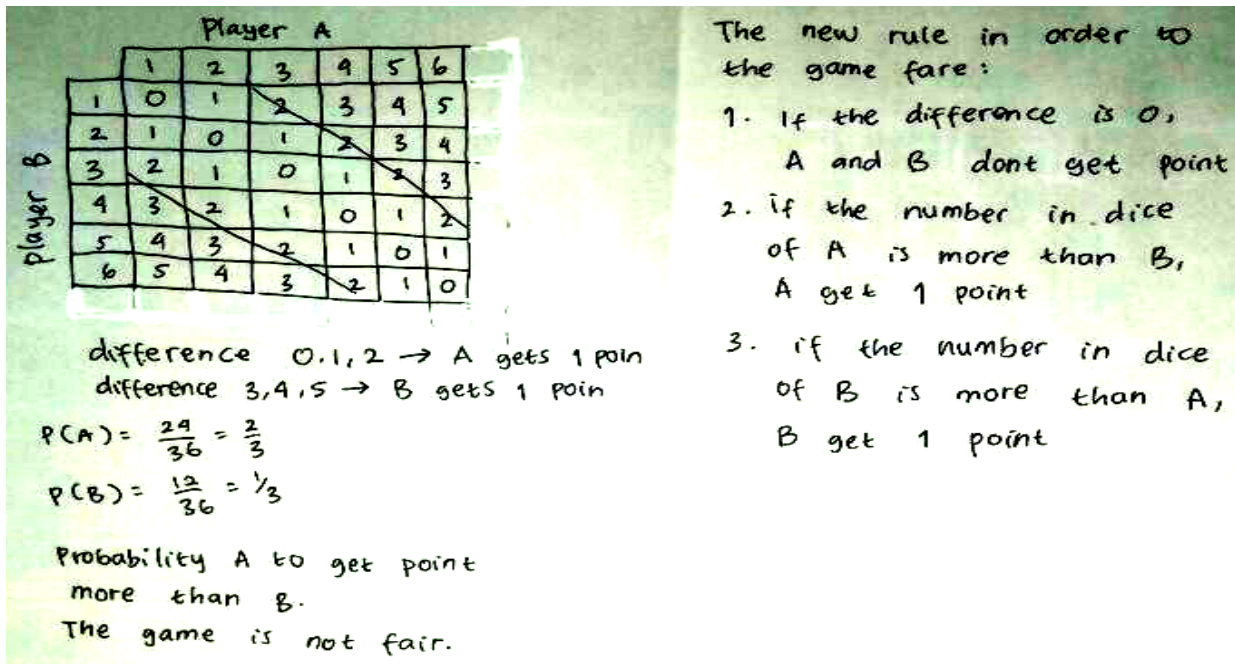 Player A
1 2 3 4 5 6
1 0 1 2 3 4 5
2 1 0 1 2 3 4
3 2 1 0 1 2 3
4 3 2 1 0 1 2
5 4 3 2 1 0 1
6 5 4 3 2 1 0
player B
difference 0.1,2 → A gets 1 poin
difference 3,4,5 → B gets 1 poin
P(A) = 24/36 = 2/3
P(B) = 12/36 = 1/3
Probability A to get point
more than B.
The game is not fair.
The new rule in order to
the game fare :
1. If the difference is 0,
A and B dont get point
2. if the number in dice
of A is more than B,
A get 1 point
3. if the number in dice
of B is more than A,
B get 1 point